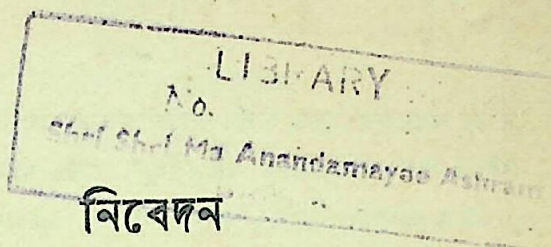 LIBRARY
No.
Shri Shri Ma Anandamayee Ashram
নিবেদন